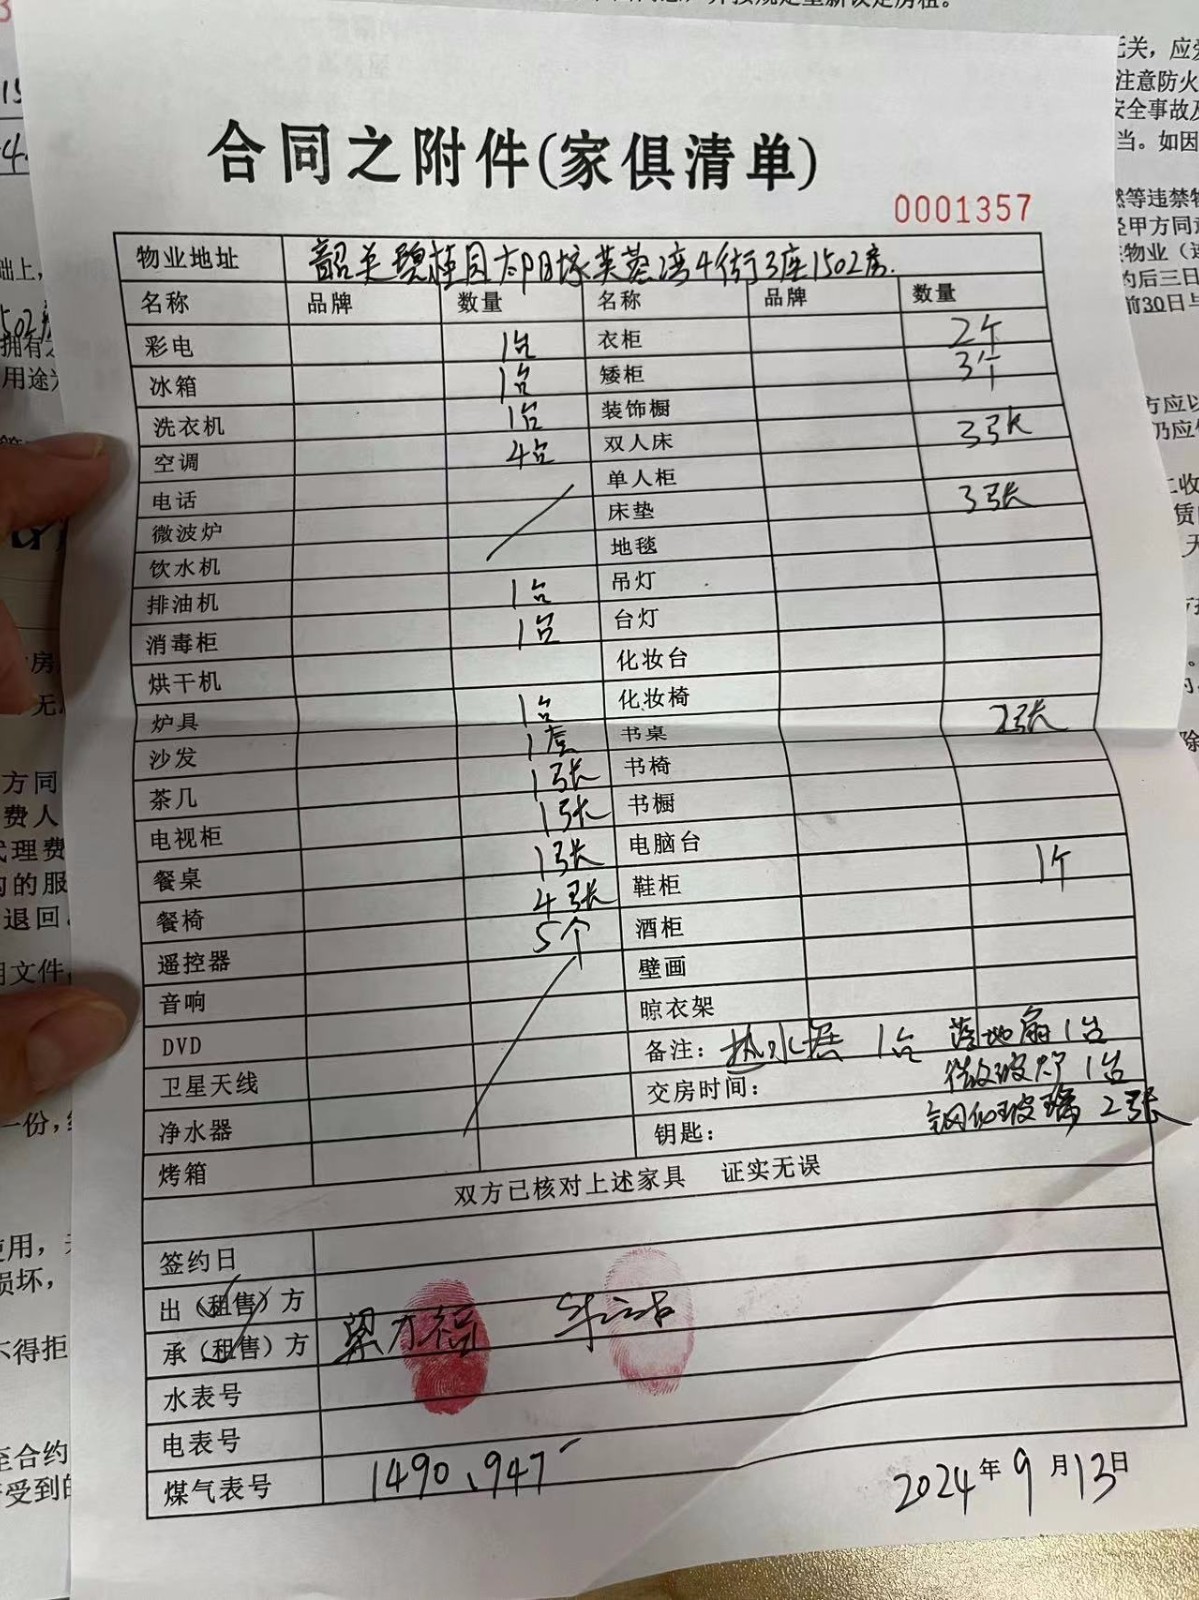 合同之附件(家俱清单)
0001357
物业地址 韶关碧桂园太阳城芙蓉湾4街3座1502房.
名称 品牌 数量 名称 品牌 数量
彩电 1台 衣柜 2个
冰箱 1台 矮柜 3个
洗衣机 1台 装饰橱
空调 4台 双人床 3张
电话 单人柜
微波炉 床垫 3张
饮水机 地毯
排油机 1台 吊灯
消毒柜 1台 台灯
烘干机 化妆台
炉具 1台 化妆椅
沙发 1套 书桌 2张
茶几 1张 书椅
电视柜 1张 书橱
餐桌 1张 电脑台
餐椅 4张 鞋柜 1个
遥控器 5个 酒柜
音响 壁画
DVD 晾衣架
卫星天线 备注: 热水器 1台 落地扇1台
净水器 交房时间: 微波炉 1台
烤箱 钥匙: 钢化玻璃 2张
双方已核对上述家具 证实无误
签约日
出(租售)方
承(租售)方
水表号
电表号
煤气表号 1490、947
2024年9月13日